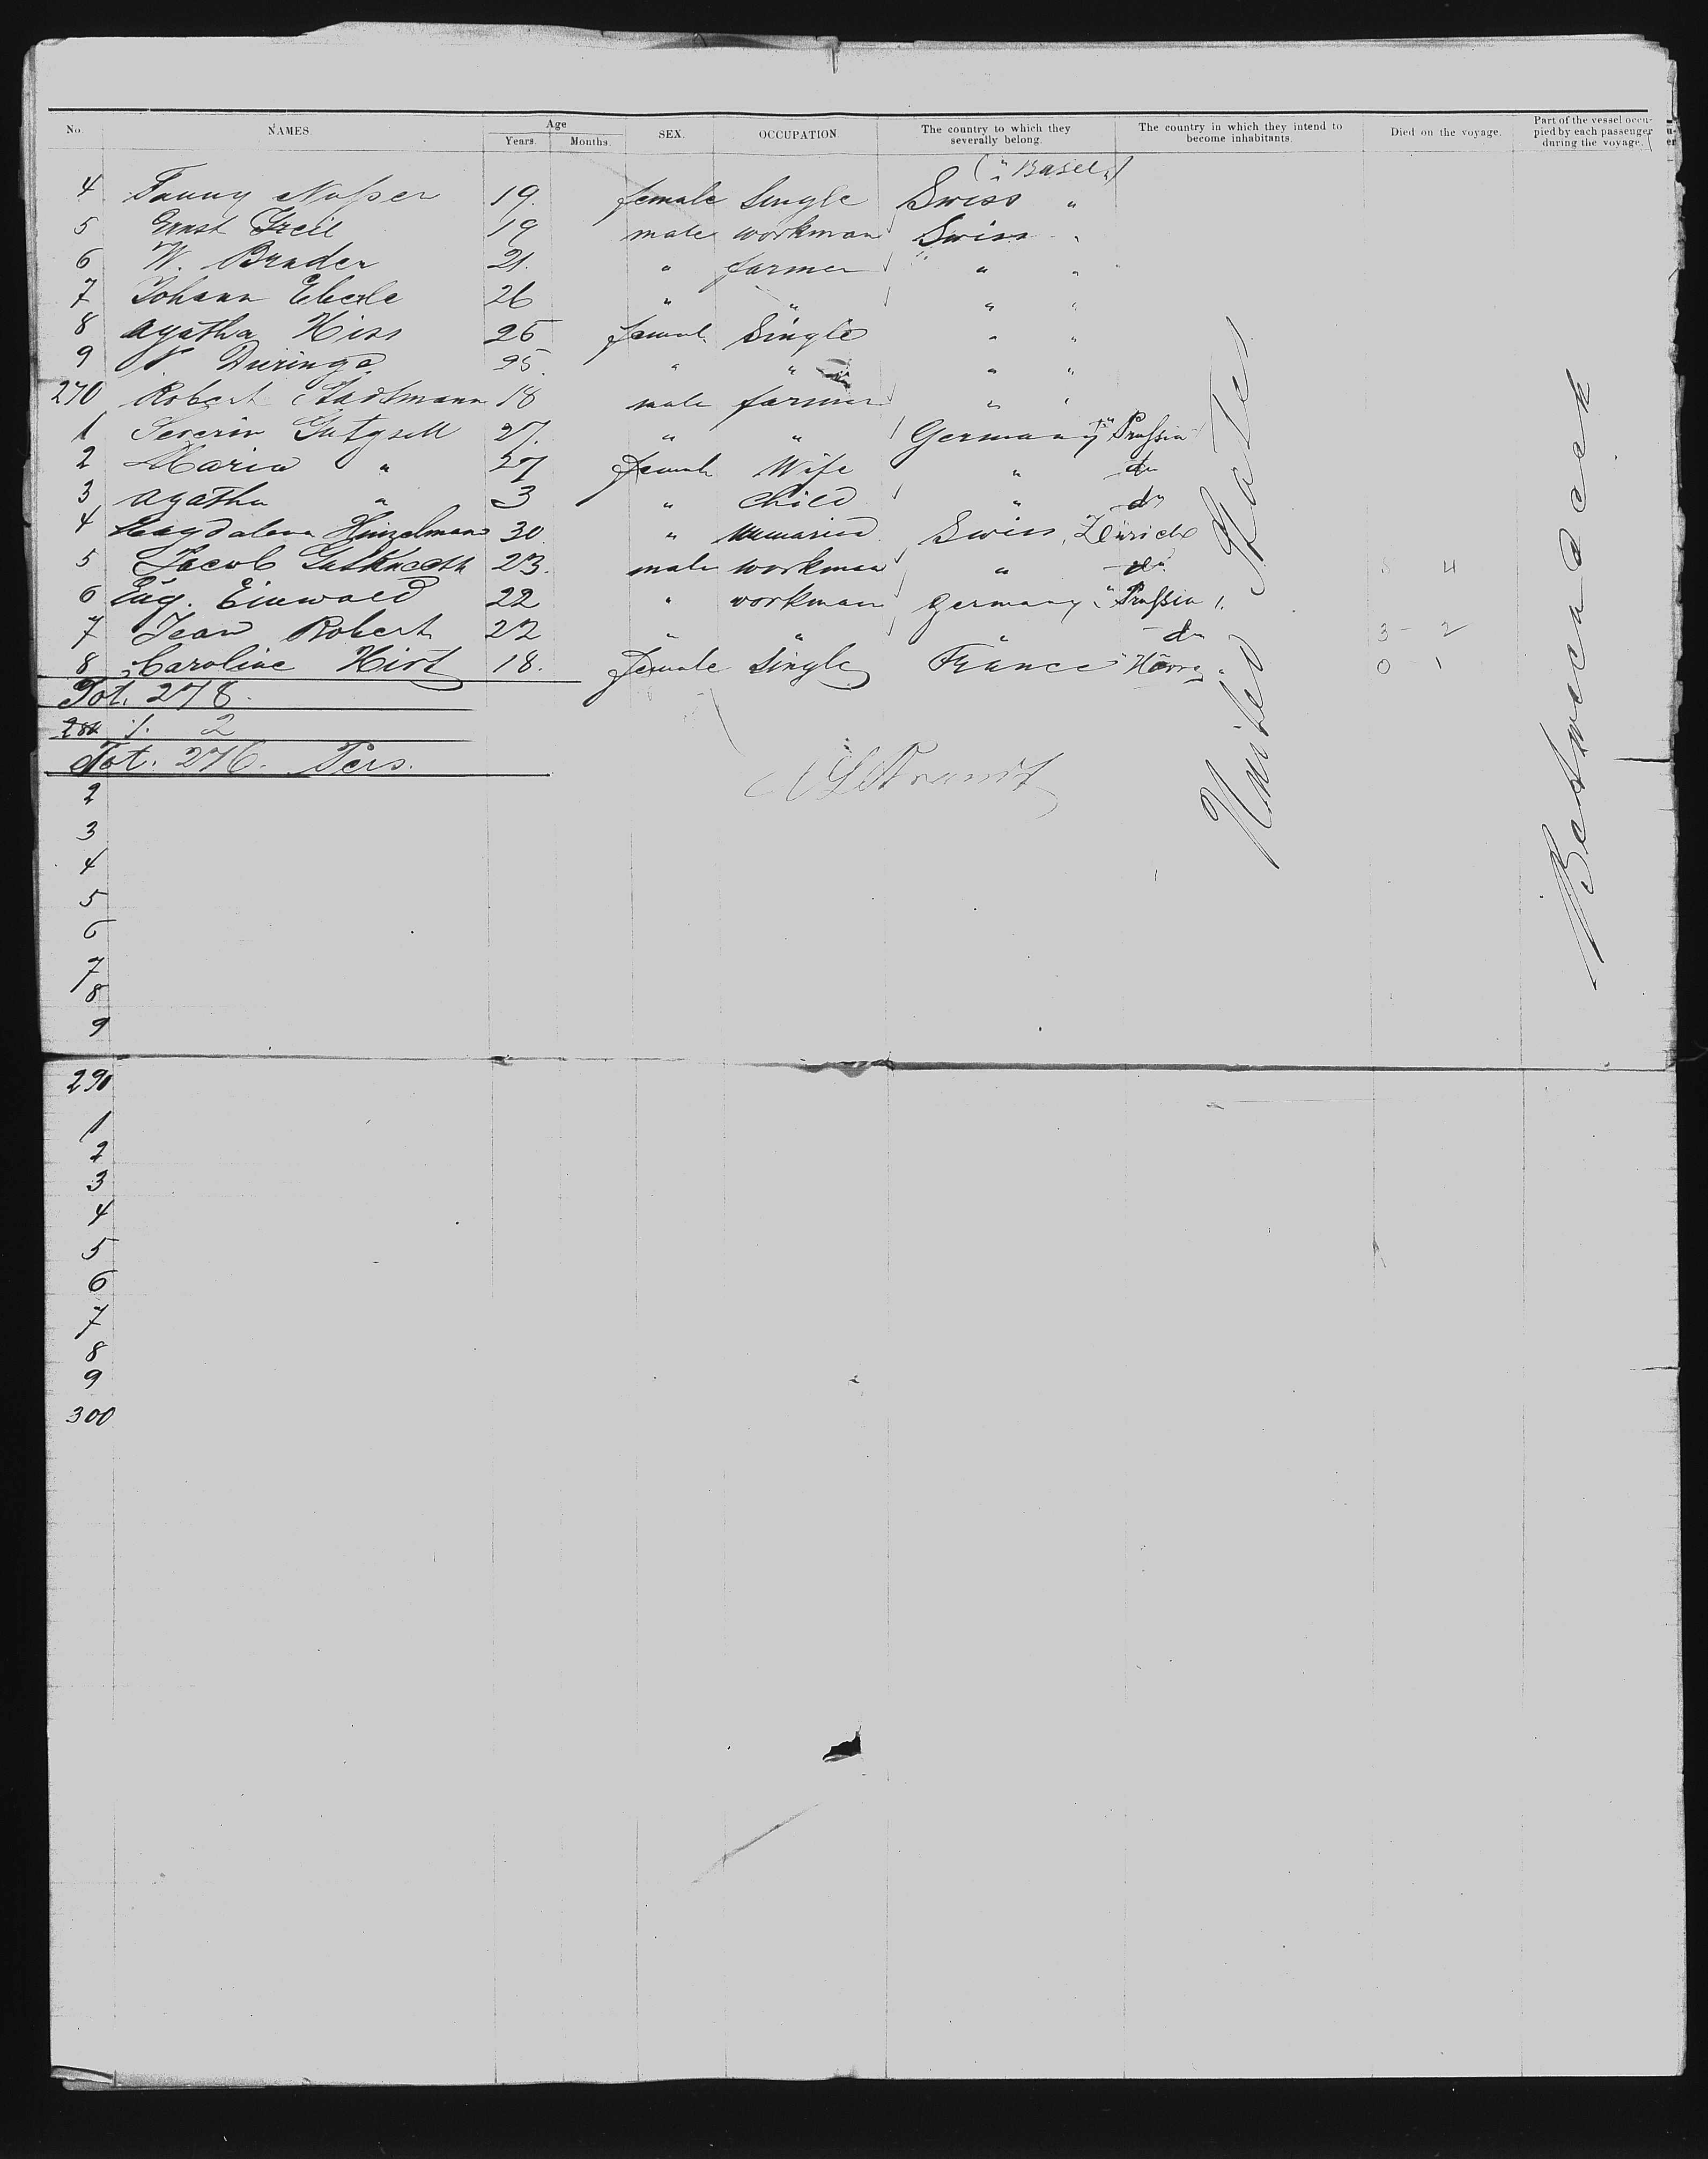 No. NAMES. Age Years. Months. SEX. OCCUPATION. The country to which they severally belong. The country in which they intend to become inhabitants. Died on the voyage. Part of the vessel occupied by each passenger during the voyage.
(" Basel ")
4 Fanny Nosser 19. female Single Swiss "
5 Ernst 19 male workman Swiss "
6 W. Bruder 21. " farmer " "
7 Johann Eberle 26 " " " "
8 Agatha Hiss 25 female Single " "
9 Düringe 25. " " " "
270 Robert Stadtmann 18 male farmer " "
1 Severin Gutgsell 27. " " Germany " Prussia
2 Maria " 27 female Wife " do
3 Agatha " 3 " Child " do
4 Magdalena Hinzelmann 30. " unmaried Swiss, Zürich
5 Jacob Gutknecht 23. male workman " do 4
6 Eug. Einwald 22 " workman Germany " Prussia
7 Jean Robert 22 " " " do 3 - 2
8 Caroline Hirt 18. female Single France " 0 1
Tot. 278.
281 ./. 2
Tot. 276. Pers.
2
3
4
5
6
7
8
9
290
1
2
3
4
5
6
7
8
9
300
United States
Between deck